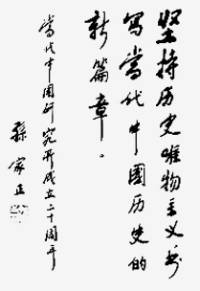 坚持历史唯物主义书
写当代中国历史的
新篇章。
当代中国研究所成立二十周年
孙家正